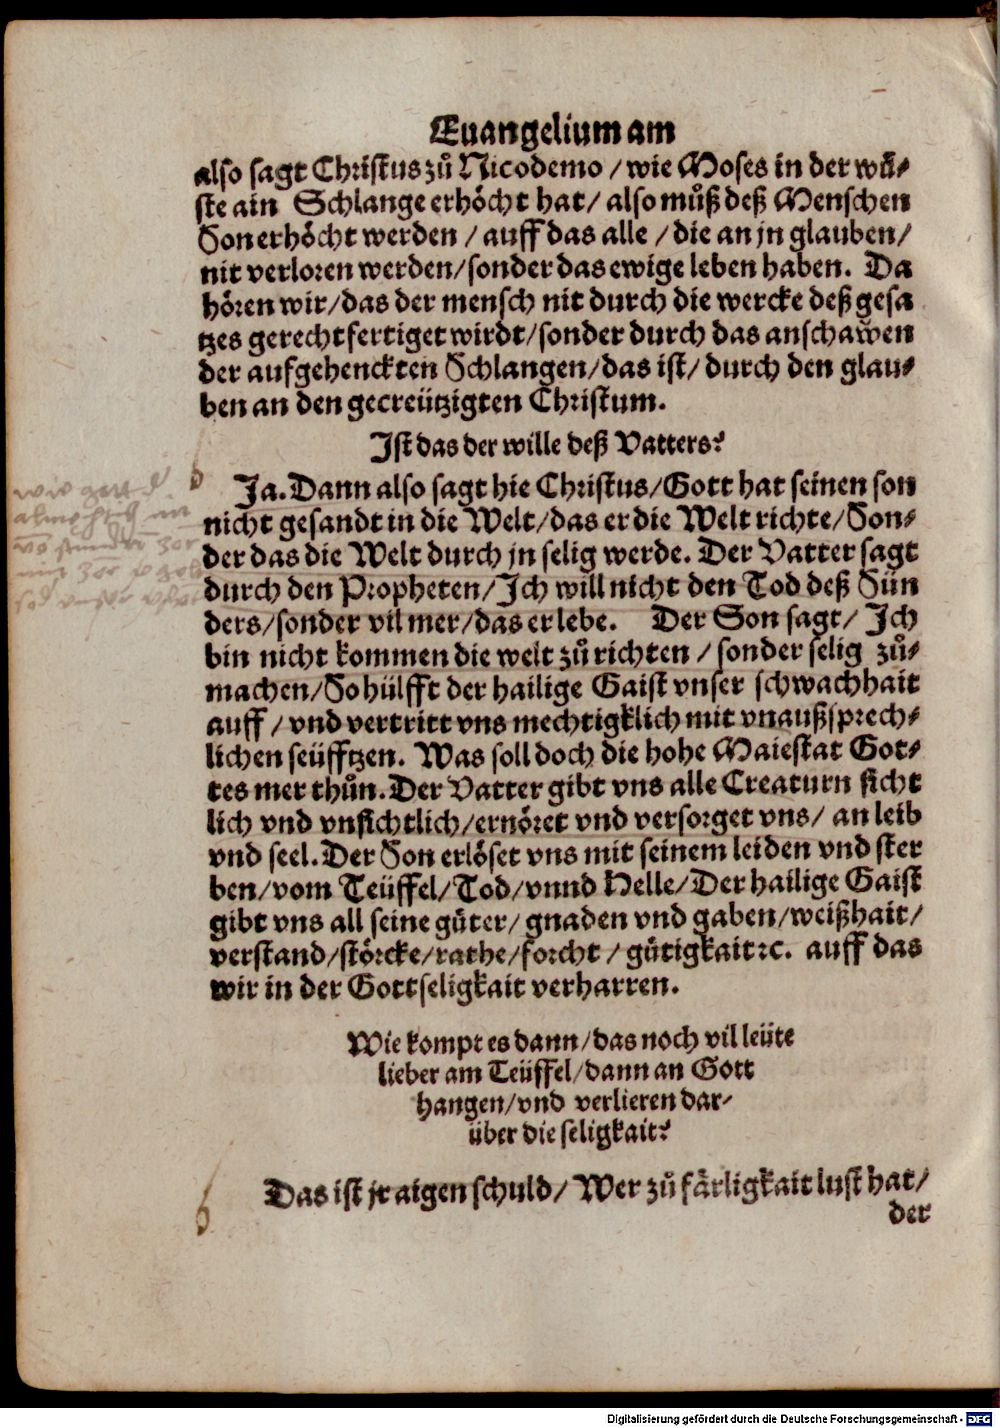 Euangelium am
also sagt Christus zů Nicodemo / wie Moses in der wů-
ste ain Schlange erhöcht hat / also můß deß Menschen
Son erhöcht werden / auff das alle / die an jn glauben /
nit verloren werden / sonder das ewige leben haben. Da
hören wir / das der mensch nit durch die wercke deß gesa
tzes gerechtfertiget wirdt / sonder durch das anschawen
der aufgehenckten Schlangen / das ist / durch den glau-
ben an den gecreützigten Christum.
Ist das der wille deß Vatters?
Ja. Dann also sagt hie Christus / Gott hat seinen son
nicht gesandt in die Welt / das er die Welt richte / Son-
der das die Welt durch jn selig werde. Der Vatter sagt
durch den Propheten / Ich will nicht den Tod deß Sün
ders / sonder vil mer / das er lebe. Der Son sagt / Ich
bin nicht kommen die welt zů richten / sonder selig zů-
machen / So hülfft der hailige Gaist vnser schwachhait
auff / vnd vertritt vns mechtigklich mit vnaußsprech-
lichen seüfftzen. Was soll doch die hohe Maiestat Got-
tes mer thůn. Der Vatter gibt vns alle Creaturn sicht
lich vnd vnsichtlich / ernöret vnd versorget vns / an leib
vnd seel. Der Son erlöset vns mit seinem leiden vnd ster
ben / vom Teüffel / Tod / vnnd Helle / Der hailige Gaist
gibt vns all seine güter / gnaden vnd gaben / weißhait /
verstand / störcke / rathe / forcht / gütigkait ꝛc. auff das
wir in der Gottseligkait verharren.
Wie kompt es dann / das noch vil leüte
lieber am Teüffel / dann an Gott
hangen / vnd verlieren dar-
über die seligkait?
Das ist jr aigen schuld / Wer zů färligkait lust hat /
der
Digitalisierung gefördert durch die Deutsche Forschungsgemeinschaft - DFG